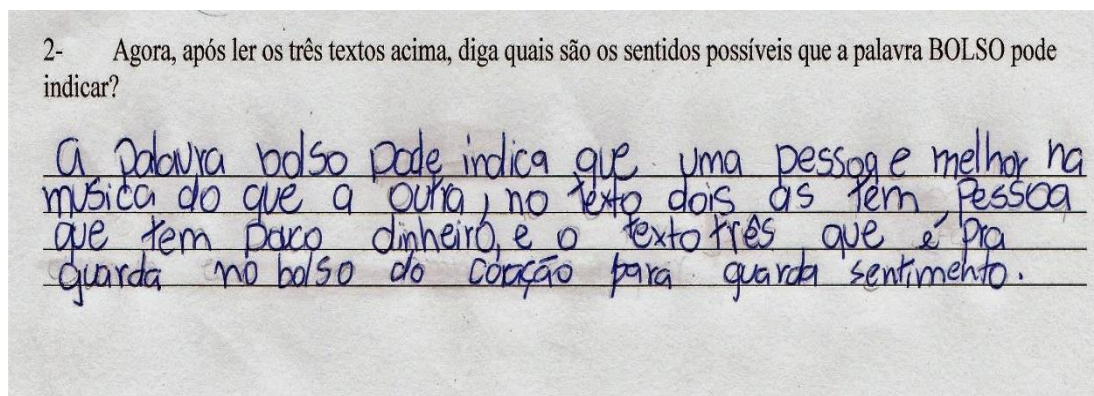 2- Agora, após ler os três textos acima, diga quais são os sentidos possíveis que a palavra BOLSO pode
indicar?
a palavra bolso pode indica que uma pessoa e melhor na
musica do que a outra, no texto dois as tem pessoa
que tem poco dinheiro, e o texto três que é pra
guarda no bolso do coração para guarda sentimento.